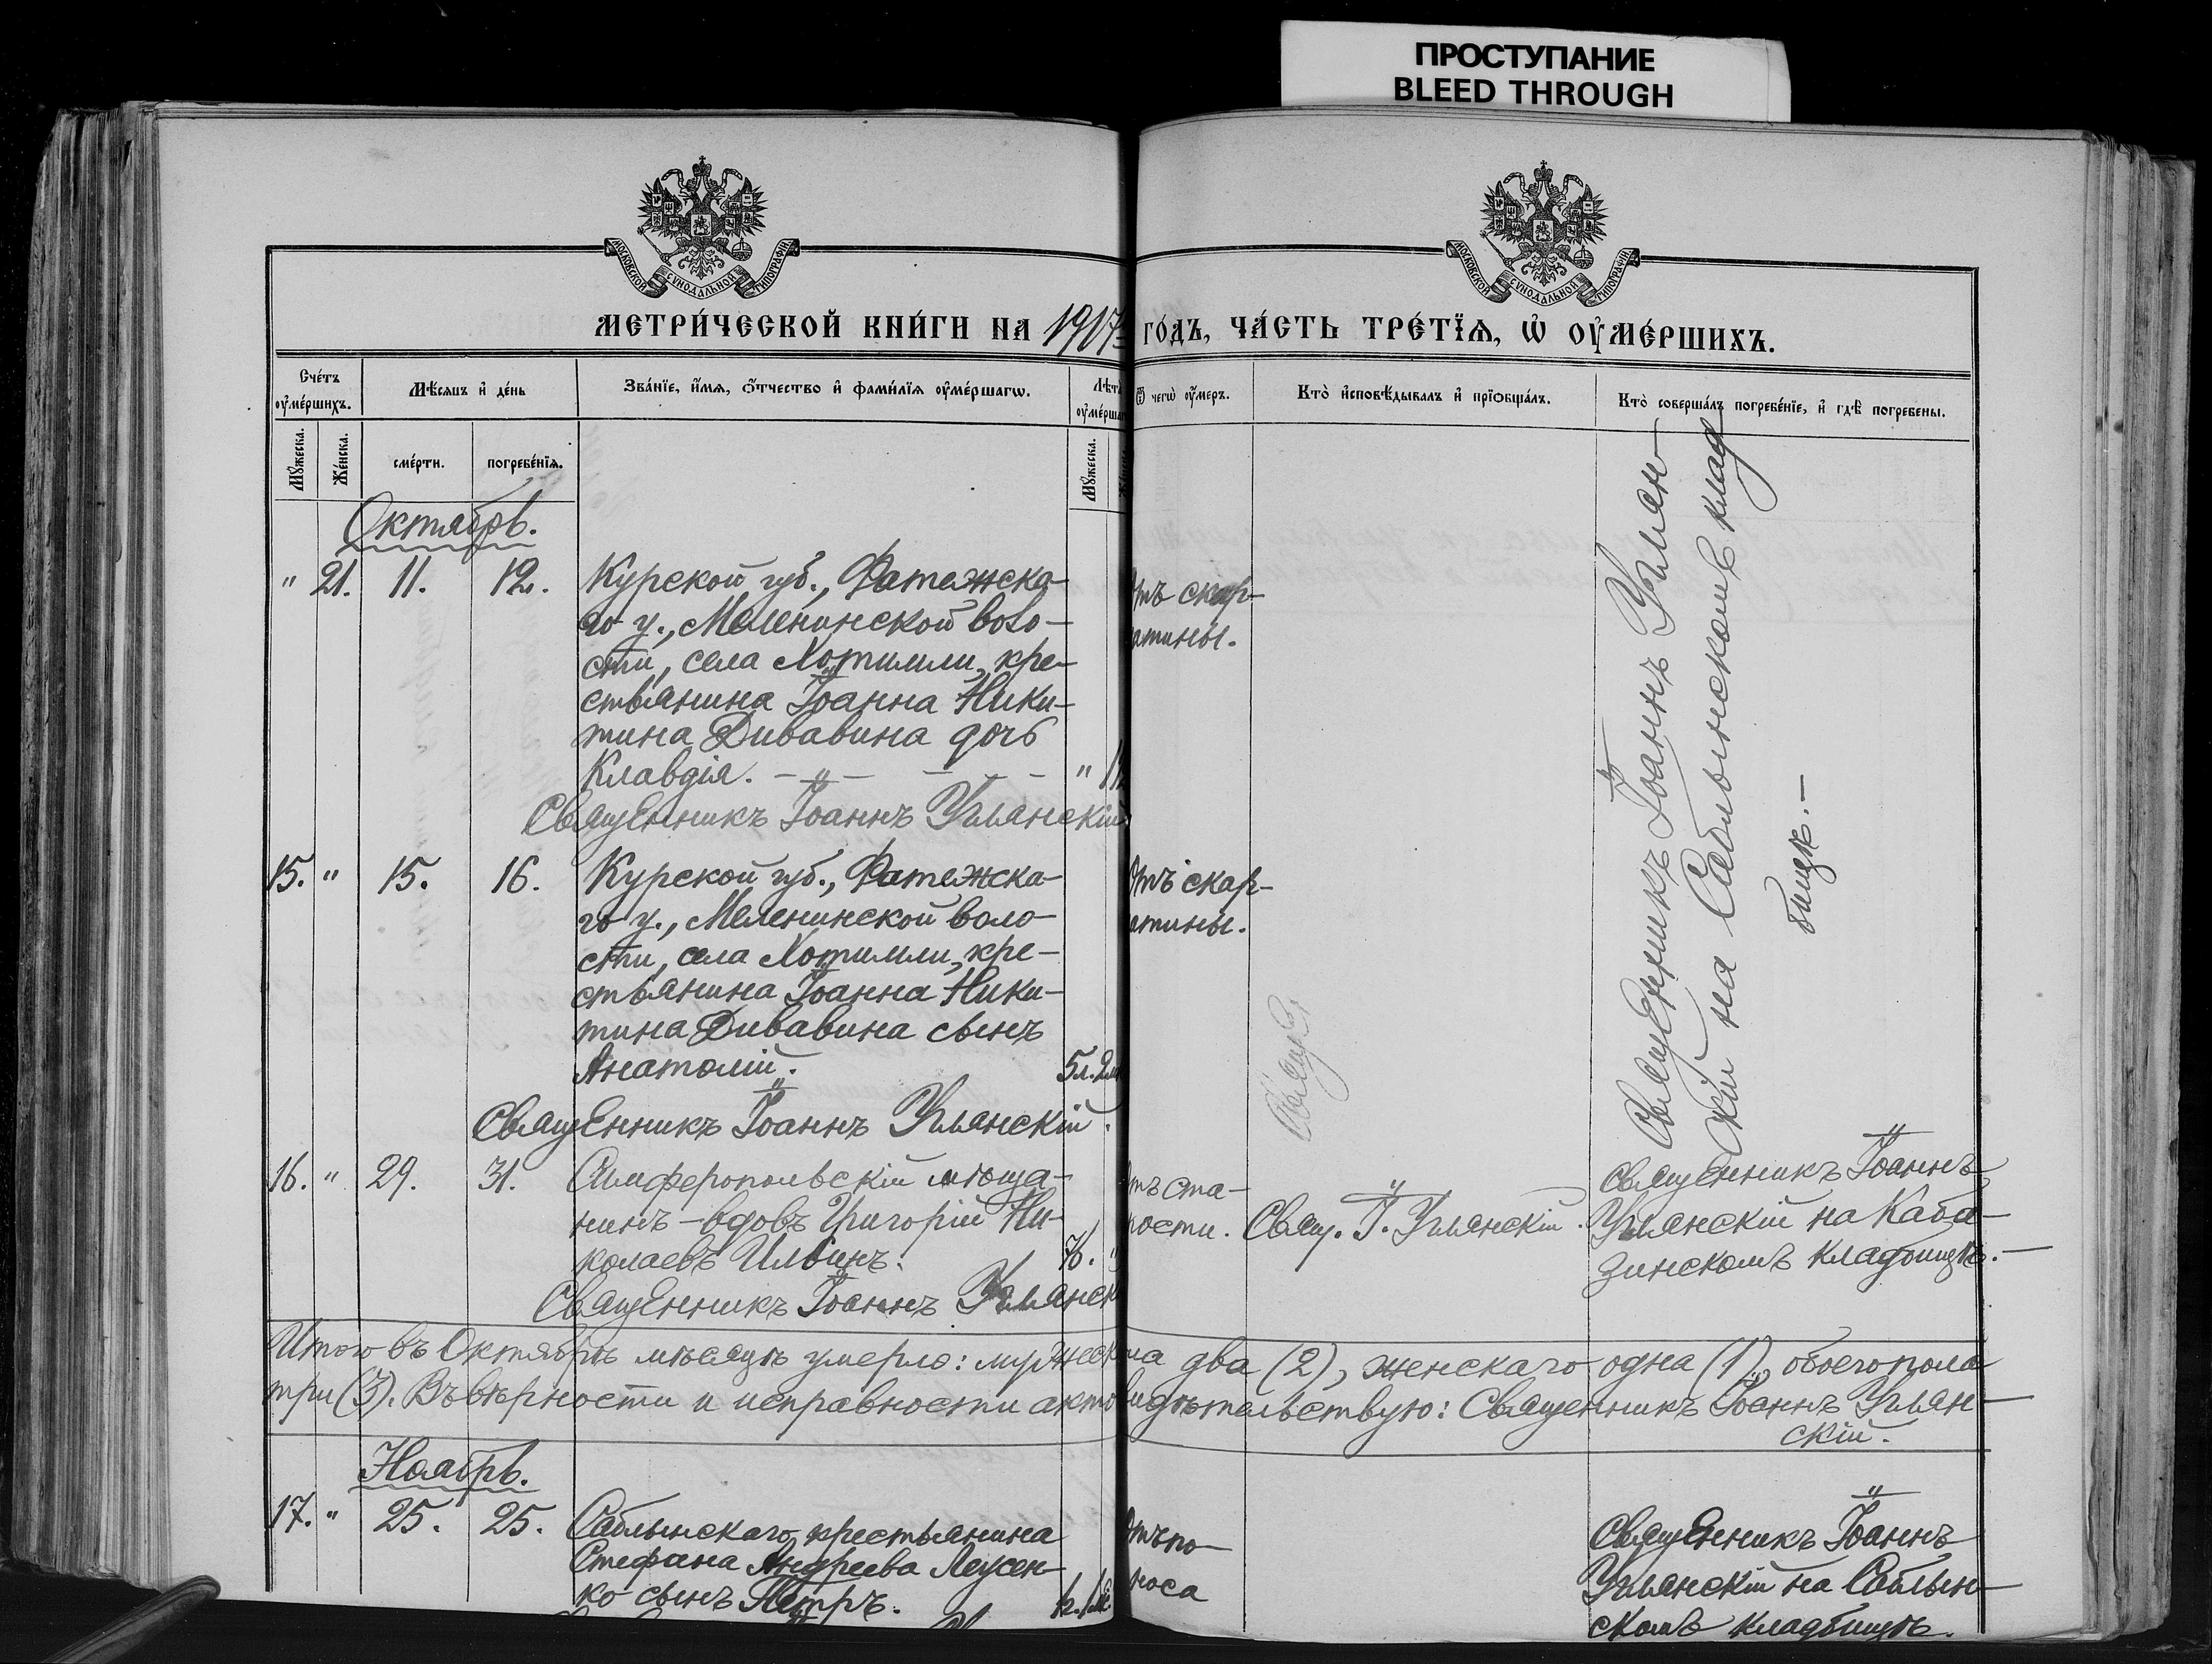 ПРОСТУПАНИЕ
BLEED THROUGH
МОСКОВСКОЙ СѴНОДАЛЬНОЙ ТИПОГРАФІИ
МОСКОВСКОЙ СѴНОДАЛЬНОЙ ТИПОГРАФІИ
МЕТРИ́ЧЕСКОЙ КНИ́ГИ НА 1917 ГО́ДЪ, ЧА́СТЬ ТРЕ́ТЇѦ, Ѡ҆ ОУ҆МЕ́РШИХЪ.
Сче́тъ оу҆ме́ршихъ.
Мѣ́сяцъ и҆ де́нь
Зва́нїе, и҆́мѧ, ѻ҆́тчество и҆ фами́лїѧ оу҆ме́ршагѡ.
Лѣта
оу҆мерша
Ѿ чегѡ̀ оу҆́меръ.
Кто̀ и҆сповѣ́дывалъ и҆ прїѻбща́лъ.
Кто̀ соверша́лъ погребе́нїе, и҆ гдѣ̀ погребены.
Мꙋ́жеска.
Же́нска.
сме́рти.
погребе́нїѧ.
Мꙋ́жеска.
Октябрь.
" 21. 11. 12. Курской губ., Фатежска-
го у., Меленинской воло-
сти, села Хотимли, кре-
стьянина Іоанна Ники-
тина Дивавина дочь
Клавдія. - " - - - - "
Священникъ Іоаннъ Углянскій
скар-
атины.
Священникъ Іоаннъ Углян-
скій на Саблынскомъ клад
бищѣ.-
15. " 15. 16. Курской губ., Фатежска-
го у., Меленинской воло-
сти, села Хотимли, кре-
стьянина Іоанна Ники-
тина Дивавина сынъ
Анатолій.
5л.
Священникъ Іоаннъ Углянскій.
Отъ скар-
атины.
Свяще
16. " 29. 31. Симферопольскій мѣща-
нинъ - вдовъ Григорій Ни-
колаевъ Ильинъ.
Священникъ Іоаннъ Углянск
тъ ста-
рости. Свящ. І. Углянскій.
Священникъ Іоаннъ
Углянскій на Каба-
зинскомъ кладбищѣ.-
Итого въ Октябрѣ мѣсяцѣ умерло: мужеск ла два (2), женскаго одна (1), обоего пола
три (3). Въ вѣрности и исправности акто видѣтельствую: Священникъ Іоаннъ Углян-
скій.
Ноябрь.
17. " 25. 25. Саблынскаго крестьянина
Стефана Андреева Леусен-
ко сынъ Петръ.
Отъ по-
носа
Священникъ Іоаннъ
Углянскій на Саблын-
скомъ кладбищѣ.